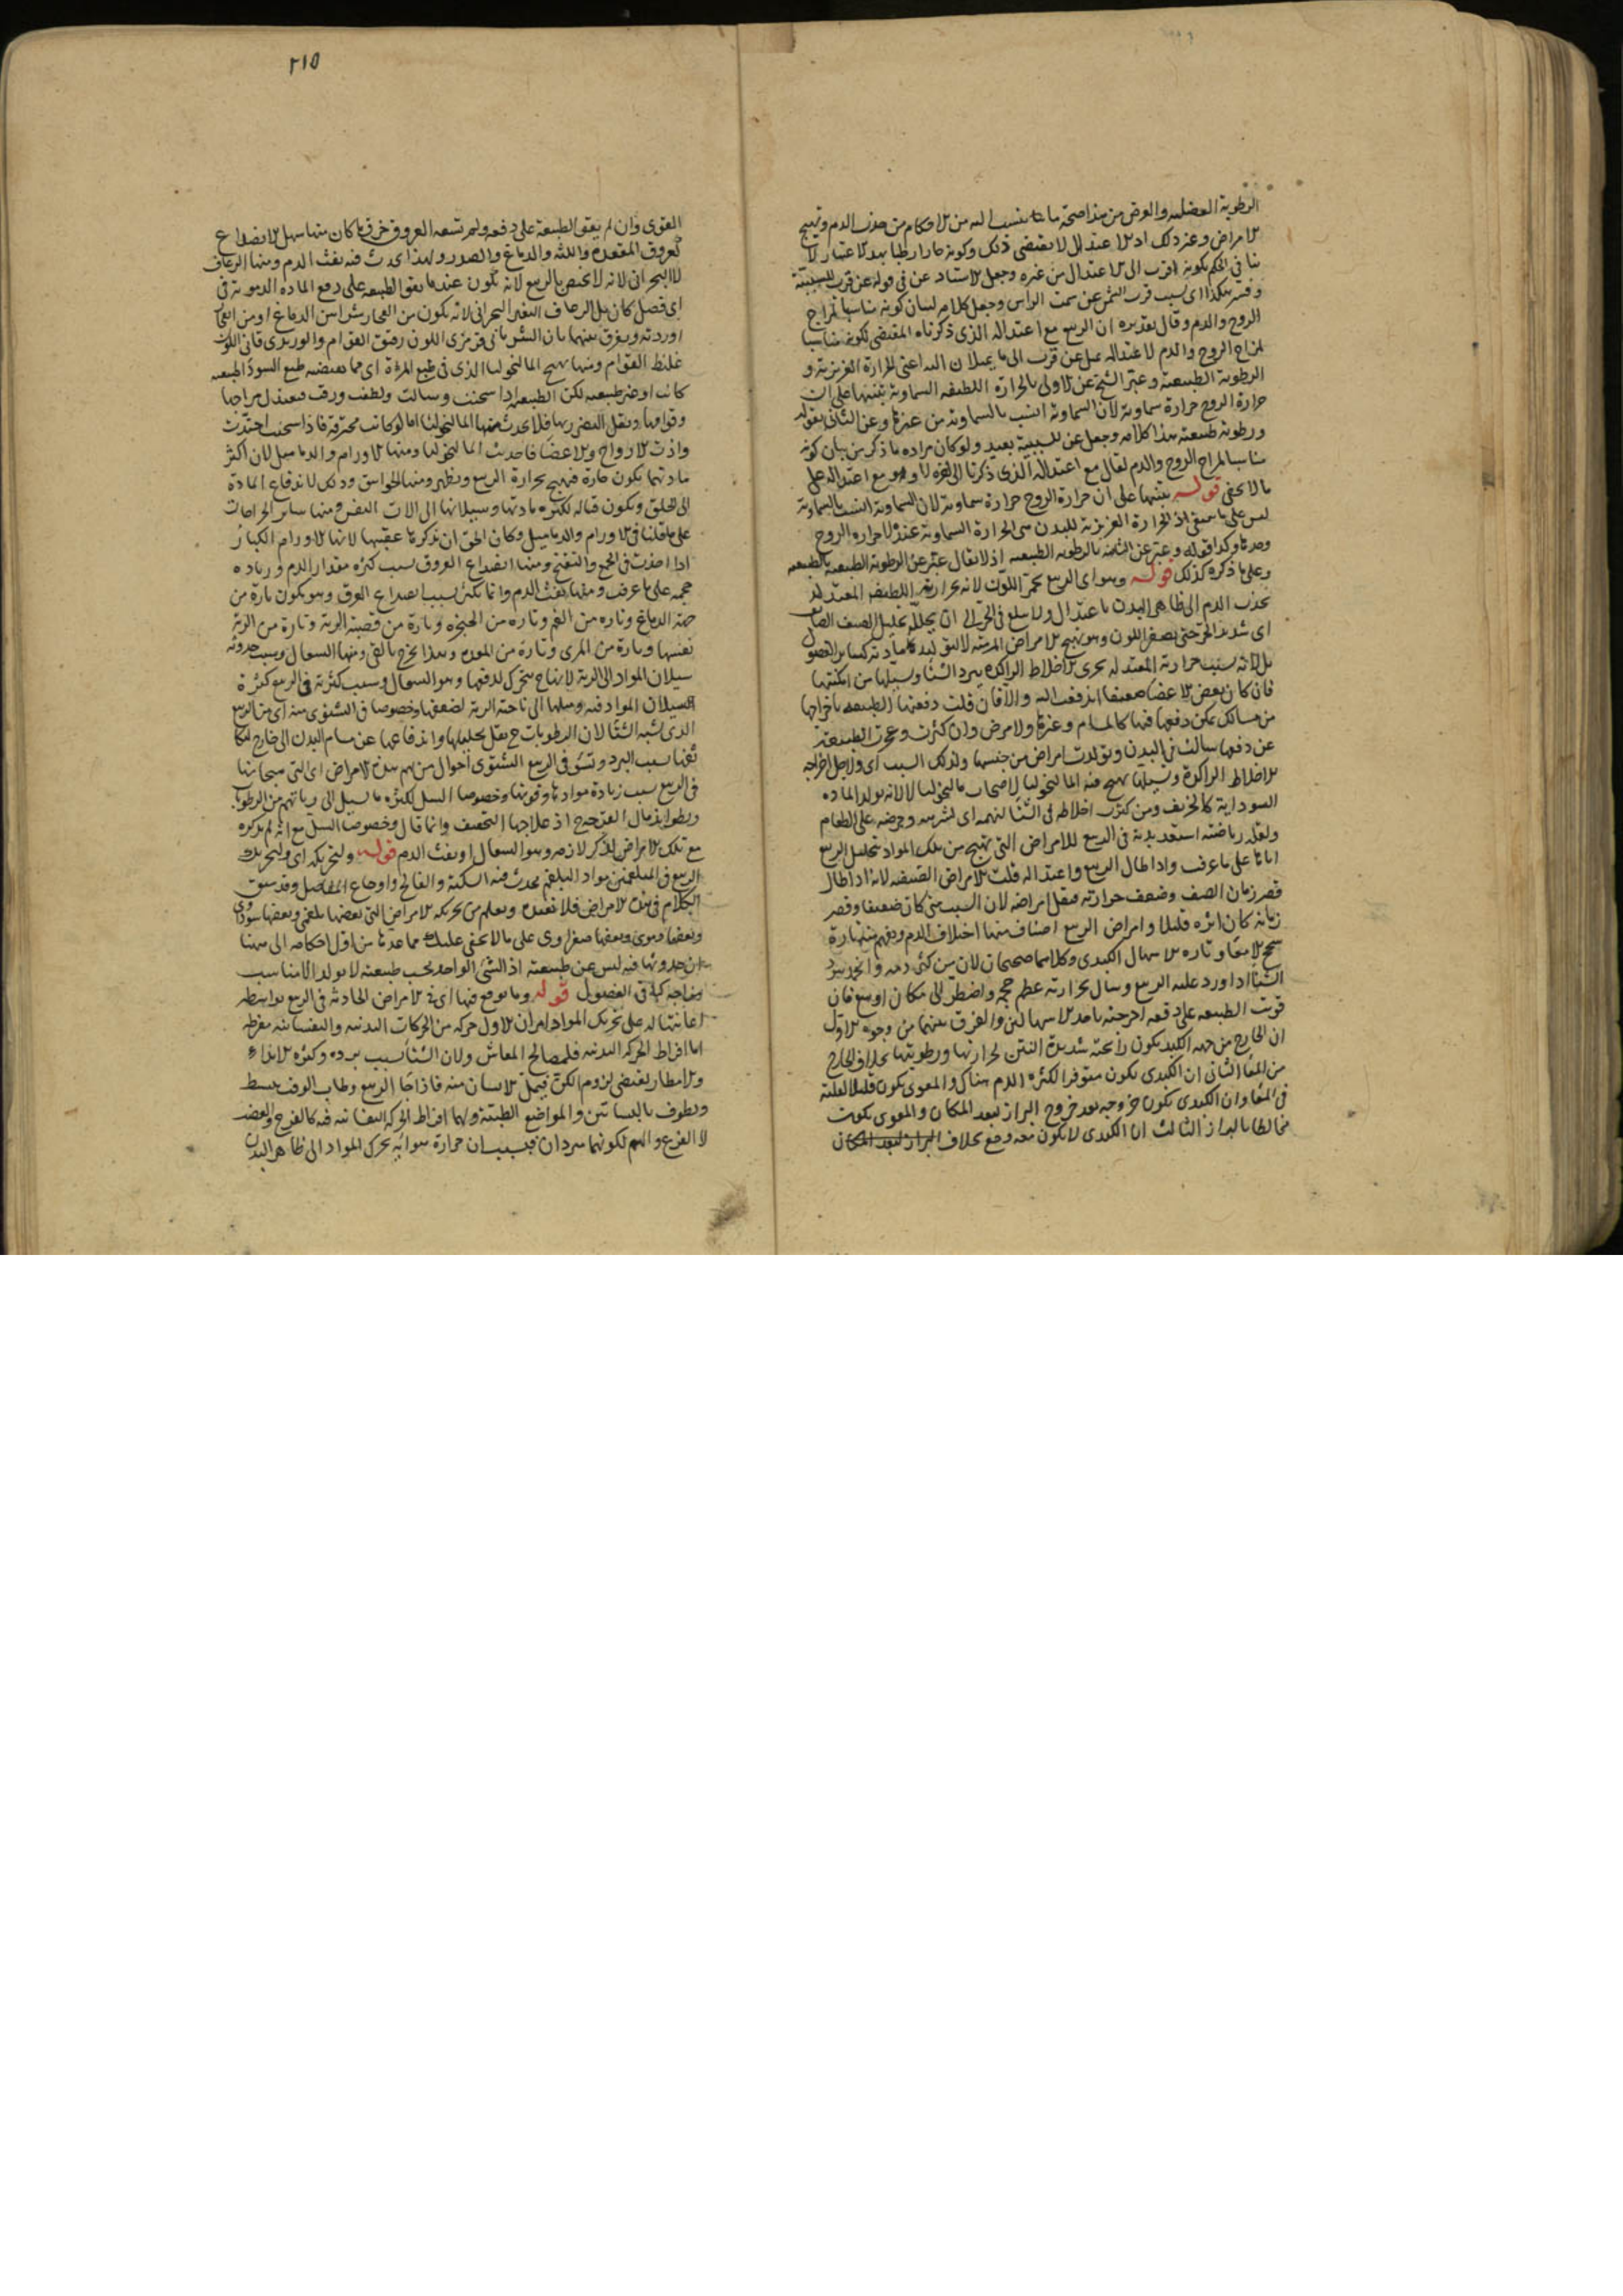 الرطوبة الفضلية والغرض من هذا صحة ما ينسب اليه من الاحكام من جذب الدم وتهييج
الامراض وغير ذلك اذ الاعتدال لا يقتضى ذلك وكونه حارا رطبا بهذا الاعتبار لا
ينافى الحكم بكونه اقرب الى الاعتدال من غيره وجعل الاستاد عن فى قوله عن قرب للسببية
وفسر هكذا اى بسبب قرب الشمس عن سمت الراس وجعل كلامه لبيان كونه مناسبا لمزاج
الروح والدم وقال تقديره ان الربيع مع اعتداله الذى ذكرناه المقتضى لكونه مناسبا
لمزاج الروح والدم لاعتداله يميل عن قرب الى ما يميلان اليه اعنى الحرارة الغريزية و
الرطوبة الطبيعية وعبر الشيخ عن الاولى بالحرارة اللطيفة السماوية تنبيها على ان
حرارة الروح حرارة سماوية لان السماوية انسب بالسماوية من غيرها وعن الثانى بقوله
ورطوبة طبيعية هذا كلامه وجعل عن للسببية بعيد ولو كان مراده ما ذكر من بيان كونه
مناسبا لمزاج الروح والدم لقال مع اعتداله الذى ذكرنا الى اخره لا وهو مع اعتداله على
ما لا يخفى قوله تنبيها على ان حرارة الروح حرارة سماوية لان السماوية انسب بالسماوية
ليس على ما ينبغى اذ الحرارة الغريزية للبدن هى الحرارة السماوية عنده لا حرارة الروح
وحدها وكذا قوله وعبر عن الثانية بالرطوبة الطبيعية اذ لا يقال عبر عن الرطوبة الطبيعية بالطبيعية
وعلى ما ذكره كذلك قوله وهو اى الربيع محمر اللون لانه بحرارته اللطيفة المعتدلة
يجذب الدم الى ظاهر البدن باعتدال ولا يبلغ فى الحر الى ان يحلله تحليل الصيف الصايف
اى شديد الحر حتى يصفر اللون وهو تهييج الامراض المزمنة لا لتوليد مادته كساير الفصول
بل لانه بسبب حرارته المعتدلة يجرى الاخلاط الراكدة ببرد الشتا ويسيلها من امكنتها
فان كان بعض الاعضا ضعيفا اندفعت اليه والا فان قلت دفعتها الطبيعة باخراجها
من مسالك يمكن دفعها فيها كالمسام وغيرها ولا مرض وان كثرت وعجزت الطبيعة
عن دفعها سالت فى البدن وتولدت امراض من جنسها ولذلك السبب اى ولاجل اخراجه
الاخلاط الراكدة وتسييلها تهييج فيه الماليخوليا لاصحاب ماليخوليا لا لانه يولد المادة
السوداوية كالخريف ومن كثرت اخلاطه فى الشتا لنهمه اى لشرهه وحرصه على الطعام
ولقلة رياضته استعد بدنه فى الربيع للامراض التى تهيج من تلك المواد بتحليل الربيع
اياها على ما عرفت واذا طال الربيع واعتداله قلت الامراض الصيفية لانه اذا طال
قصر زمان الصيف وضعف حرارته فيقل امراضه لان السبب متى كان ضعيفا وقصر
زمانه كان اثره قليلا وامراض الربيع اصناف منها اختلاف الدم ويفهم منه تارة
سحج الامعا وتارة الاسهال الكبدى وكلاهما صحيحان لان من كثر دمه وانجمد ببرد
الشتا اذا ورد عليه الربيع وسال بحرارته عظم حجمه واضطر الى مكان اوسع فان
قويت الطبيعة على دفعه اخرجته باحد الاسهالين والفرق بينهما من وجوه الاول
ان الخارج من جهة الكبد يكون رائحته شديدة النتن لحرارتها ورطوبتها بخلاف الخارج
من المعا الثانى ان الكبدى يكون متوفرا لكثرة الدم هناك والمعوى يكون قليلا لقلته
فى المعا وان الكبدى يكون خروجه بعد خروج البراز لبعد المكان والمعوى يكون
مخالطا بالبراز الثالث ان الكبدى لا يكون معه وجع بخلاف البراز لبعد المكان
٢١٥
القوى وان لم يقو الطبيعة على دفعه ولم تسعه العروق خرق ما كان منها سهل الانصداع
كعروق المقعدة واللثة والدماغ والصدر ولهذا يحدث فيه نفث الدم ومنها الرعاف
لا البحرانى لانه لا يختص بالربيع لانه يكون عندما يقوى الطبيعة على دفع المادة الدموية فى
اى فصل كان بل الرعاف الغير البحرانى لانه يكون من انفجار شرايين الدماغ او من انفجار
اوردته ويفرق بينهما بان الشريانى قرمزى اللون رقيق القوام والوريدى قانى اللون
غليظ القوام ومنها تهيج الماليخوليا الذى فى طبع المرة اى مما يقتضيه طبع السودا طبيعية
كانت او غير طبيعية لكن الطبيعية اذا سخنت وسالت ولطفت ورقت فيعتدل مزاجها
وقوامها ويقل التضرر بها فلا يحدث منها الماليخوليا اما لو كانت محترقة فاذا سخنت احتدت
واذت الارواح والاعضا فاحدثت الماليخوليا ومنها الاورام والدماميل لان اكثر
مادتهما يكون حارة فتهيج بحرارة الربيع وتظهر ومنها الخوانيق وذلك لاندفاع المادة
الى الحلق ويكون قتاله لكثرة مادتها وسيلانها الى الات النفس ومنها ساير الخراجات
على ما قلنا فى الاورام والدماميل وكان الحق ان نذكرها عقيبها لانها الاورام الكبار
اذا اخذت فى الجمع والتقيح ومنها انصداع العروق بسبب كثرة مقدار الدم وزيادة
حجمه على ما عرفت ومنها نفث الدم وانما يكثر بسبب انصداع العرق وهو يكون تارة من
جهة الدماغ وتارة من الفم وتارة من الحنجرة وتارة من قصبة الرية وتارة من الرية
نفسها وتارة من المرى وتارة من المعدة وهذا يخرج بالقى ومنها السعال وسبب حدوثه
سيلان المواد الى الرية لانها ح تتحرك لدفعها وهو السعال وسبب كثرته فى الربيع كثرة
السيلان المواد فيه وميلها الى ناحية الرية لضعفها وخصوصا فى الشتوى منه اى من الربيع
الذى شبه الشتا لان الرطوبات ح يقل تحليلها واندفاعها عن مسام البدن الى خارج لتكا
ثفها بسبب البرد وتسو فى الربيع الشتوى احوال من بهم هذه الامراض اى التى هيجانها
فى الربيع بسبب زيادة موادها وقوتها وخصوصا السل لكثرة ما يسيل الى رياتهم من الرطوبات
وبطو اندمال القرحة ح اذ علاجها التجفيف وانما قال وخصوصا السل مع انه لم يذكره
مع تلك الامراض لذكر لازمه وهو السعال او نفث الدم قوله ولتحريكه اى ولتحريك
الربيع فى المبلغمين مواد البلغم يحدث فيه السكتة والفالج واوجاع المفاصل وقد سبق
الكلام فى هذه الامراض فلا نعيده ويعلم من تحريكه الامراض التى بعضها بلغمى وبعضها سوداوى
وبعضها دموى وبعضها صفراوى على ما لا يخفى عليك مما عددنا من اول احكامه الى هاهنا
ان حدوثها فيه ليس عن طبيعته اذ الشى الواحد بحسب طبيعته لا يولد الا مناسب
مزاجه كباقى الفصول قوله وما يوقع فيها اى فى الامراض الحادثة فى الربيع بواسطة
اعانتها له على تحريك المواد امران الاول حركة من الحركات البدنية والنفسانية مفرطة
اما افراط الحركة البدنية فلمصالح المعاش ولان الشتا بسبب برده وكثرة الانداء
والامطار يقتضى لزوم الكن فيمل الانسان منه فاذا جا الربيع وطاب الوقت ينبسط
ويطوف بالبساتين والمواضع الطيبة ولها افراط الحركة النفسانية فيه كالفرح والغضب
لا الفزع والهم لكونهما مبردان فبسببان حرارة هوائه يحرك المواد الى ظاهر البدن